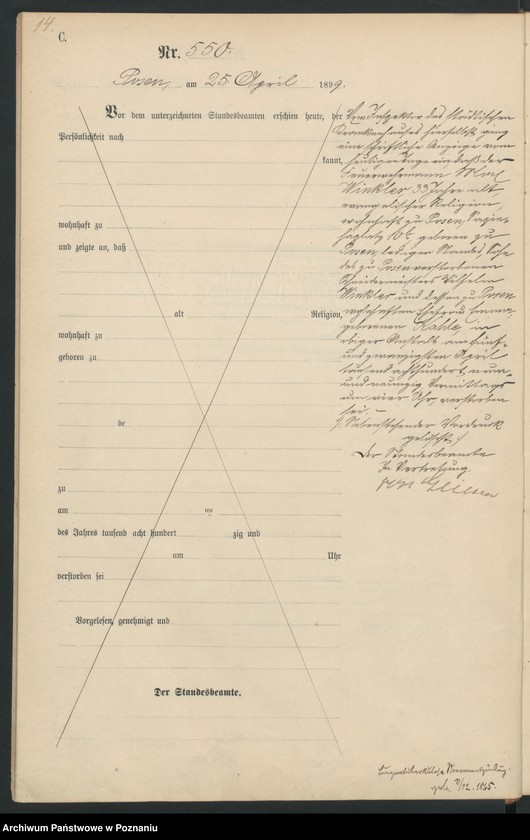 14.
C.
Nr. 550.
Posen, am 25. April 1899.
Vor dem unterzeichneten Standesbeamten erschien heute, der
Persönlichkeit nach
kannt,
wohnhaft zu
und zeigte an, daß
alt Religion,
wohnhaft zu
geboren zu
de
zu
am ten
des Jahres tausend acht hundert zig und
um Uhr
verstorben sei
Vorgelesen, genehmigt und
Der Standesbeamte.
Vom Inspektor des städtischen
Krankenhauses hierselbst ging
eine schriftliche Anzeige vom
heutigen Tage ein daß der
Feuerwehrmann
Winkler 33 Jahre alt,
evangelischer Religion,
wohnhaft zu Posen,
geboren zu
Posen, ledigen Standes, Sohn
des zu Posen verstorbenen
Wilhelm
Winkler und dessen zu Posen
wohnhaften Ehefrau Emma
geborenen Kahle, in
obiger Anstalt am fünf-
und zwanzigsten April
tausend achthundert neun-
und neunzig Vormittags
um vier Uhr verstorben
sei. –
Nebenstehender Vordruck
gelöscht.
Der Standesbeamte
In Vertretung.
geb. 1865.
Archiwum Państwowe w Poznaniu